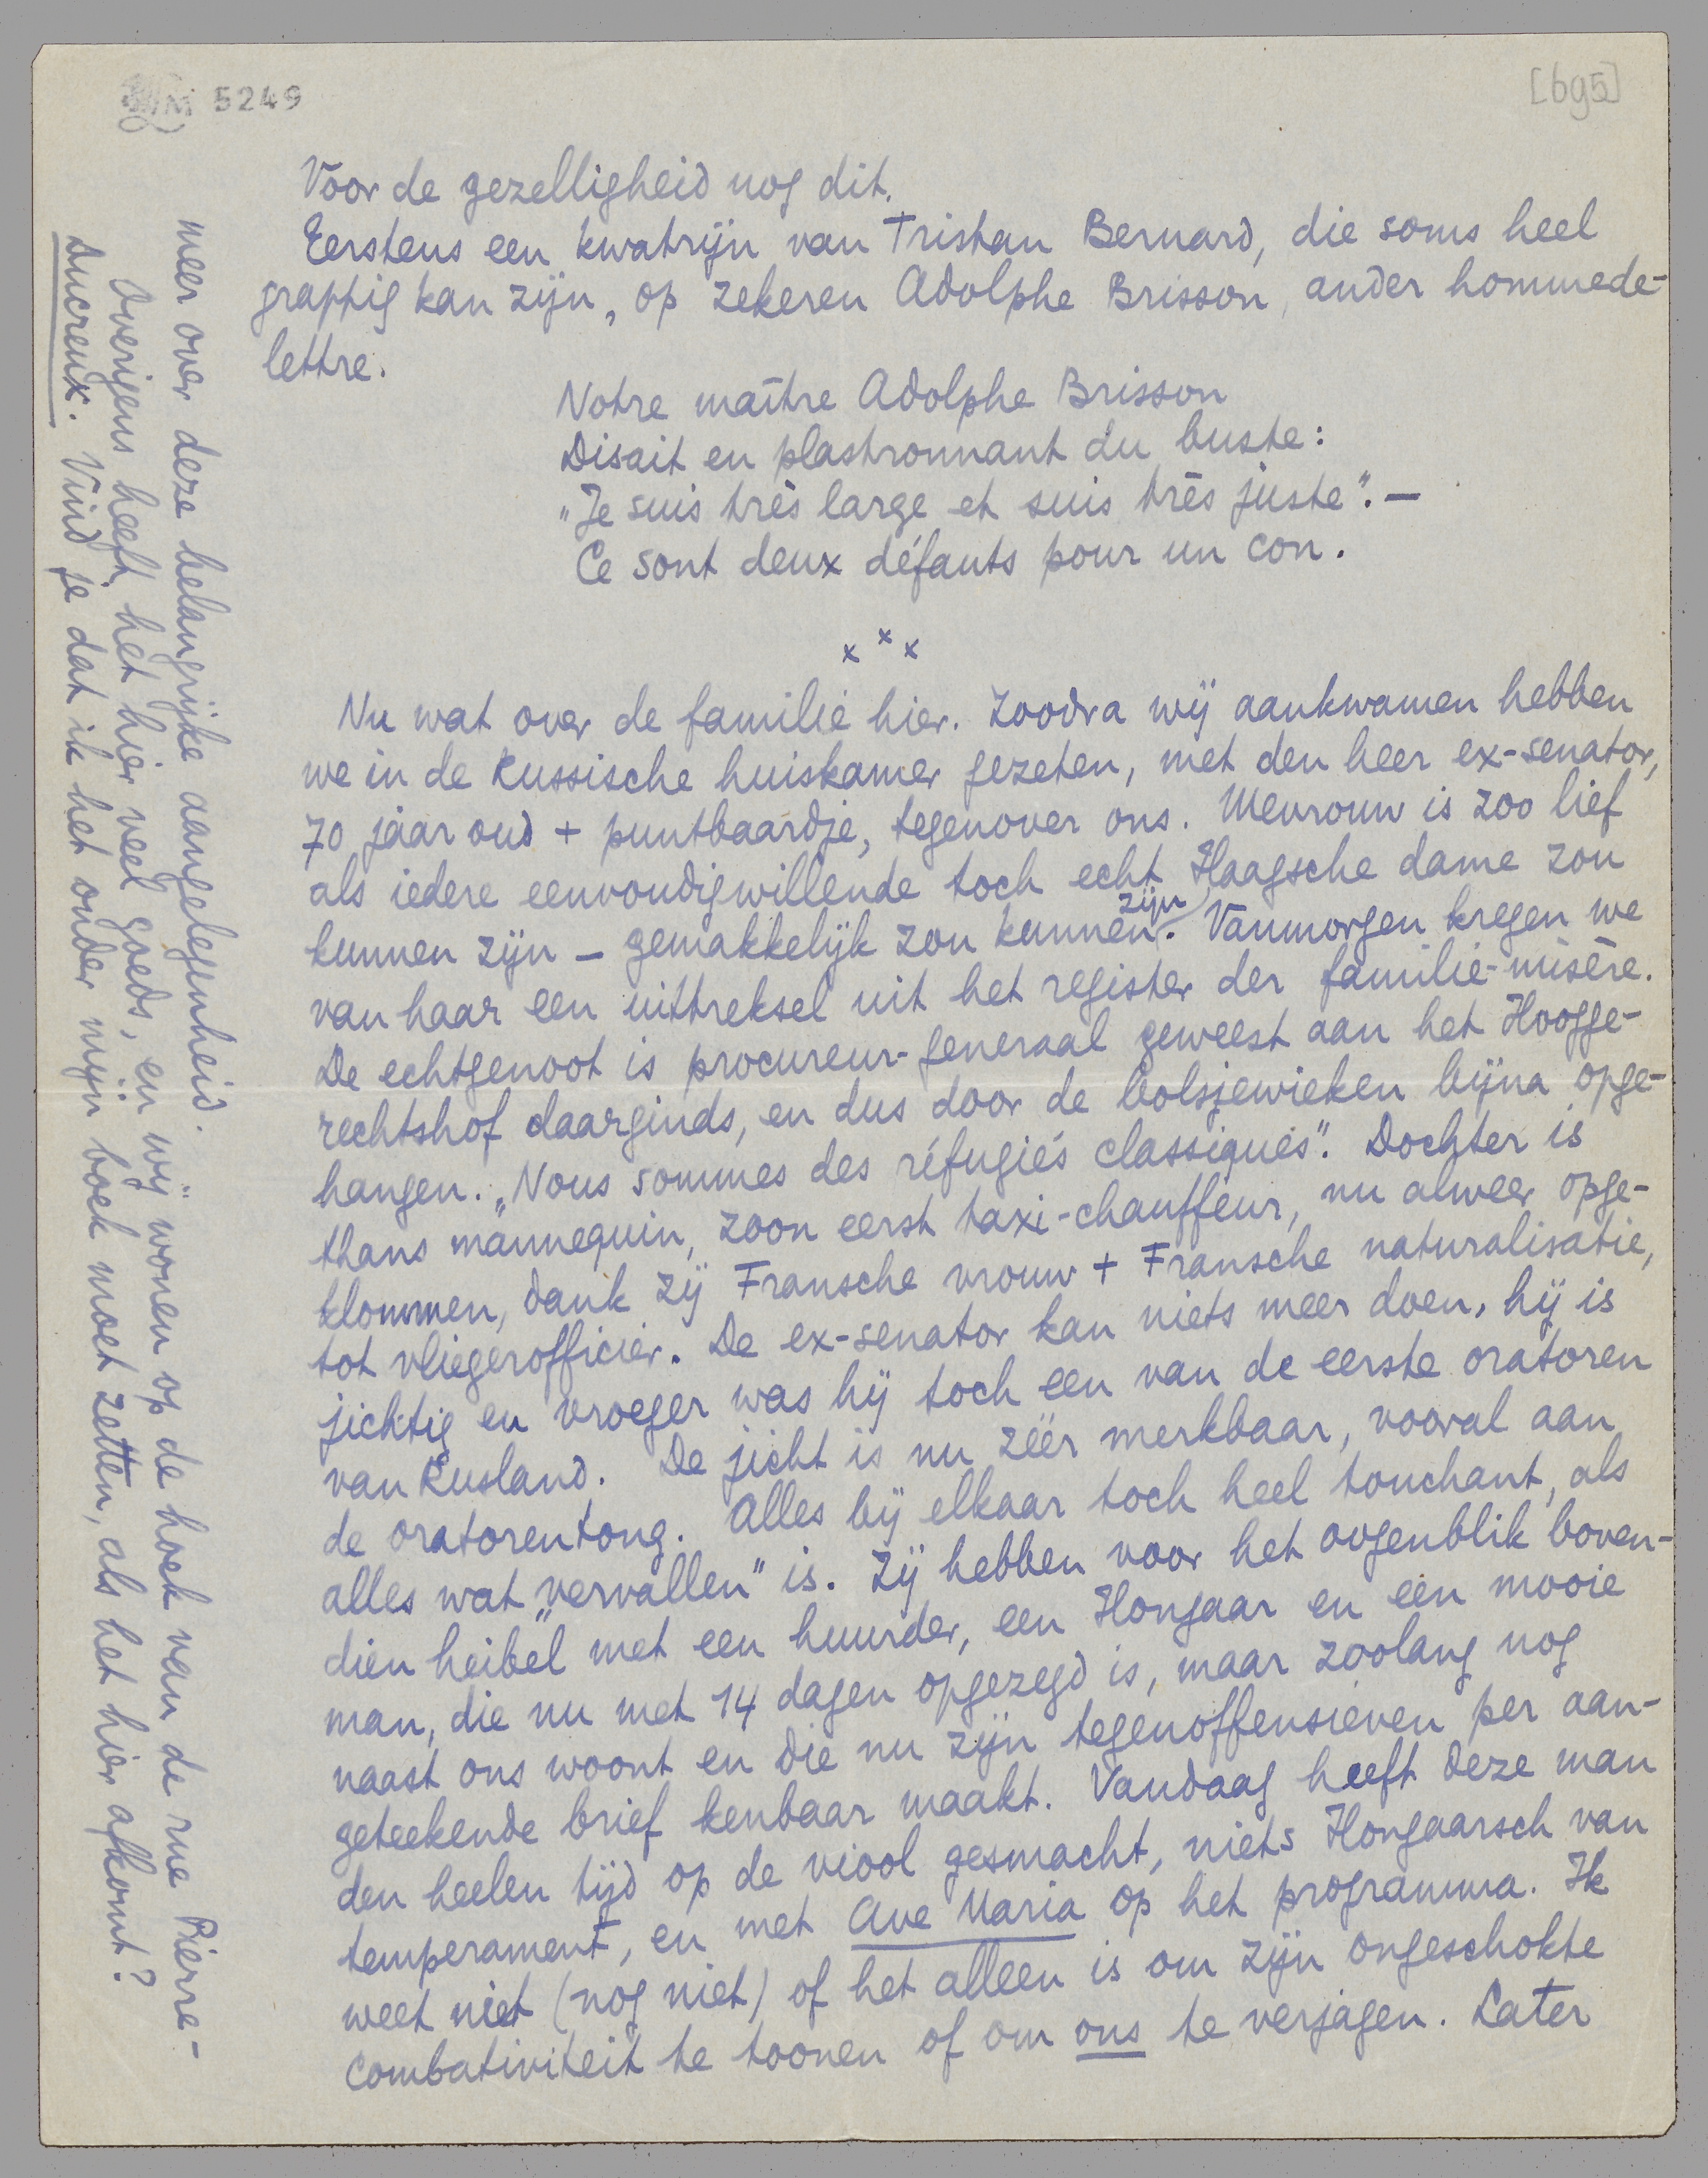 5249
[695]
Voor de gezelligheid nog dit.
Eerstens een kwatrijn van Tristan Bernard, die soms heel
grappig kan zijn, op zekeren Adolphe Brisson, ander hommede-
lettre.
Notre maître Adolphe Brisson
Disait en plastronnant du buste:
„Je suis très large et suis très juste”. —
Ce sont deux défauts pour un con.
x x x
Nu wat over de familie hier. Zoodra wij aankwamen hebben
we in de Russische huiskamer gezeten, met den heer ex-senator,
70 jaar oud + puntbaardje, tegenover ons. Mevrouw is zoo lief
als iedere eenvoudigwillende toch echt Haagsche dame zou
kunnen zijn – gemakkelijk zou kunnen zijn. Vanmorgen kregen we
van haar een uittreksel uit het register der familie-misère.
De echtgenoot is procureur-generaal geweest aan het Hoogge-
rechtshof daarginds, en dus door de bolsjewieken bijna opge-
hangen. „Nous sommes des réfugiés classiques”. Dochter is
thans mannequin, zoon eerst taxi-chauffeur, nu alweer opge-
klommen, dank zij Fransche vrouw + Fransche naturalisatie,
tot vliegerofficier. De ex-senator kan niets meer doen, hij is
jichtig en vroeger was hij toch een van de eerste oratoren
van Rusland. De jicht is nu zéér merkbaar, vooral aan
de oratorentong. Alles bij elkaar toch heel touchant, als
alles wat „vervallen” is. Zij hebben voor het oogenblik boven-
dien heibel met een huurder, een Hongaar en een mooie
man, die nu met 14 dagen opgezegd is, maar zoolang nog
naast ons woont en die nu zijn tegenoffensieven per aan-
geteekende brief kenbaar maakt. Vandaag heeft deze man
den heelen tijd op de viool gesmacht, niets Hongaarsch van
temperament, en met Ave Maria op het programma. Ik
weet niet (nog niet) of het alleen is om zijn ongeschokte
combativiteit te toonen of om ons te verjagen. Later
meer over deze belangrijke aangelegenheid.
Overigens heeft het hier veel goeds, en wij wonen op de hoek van de rue Pierre-
Ducreux. Vind je dat ik het onder mijn boek moet zetten, als het hier afkomt?